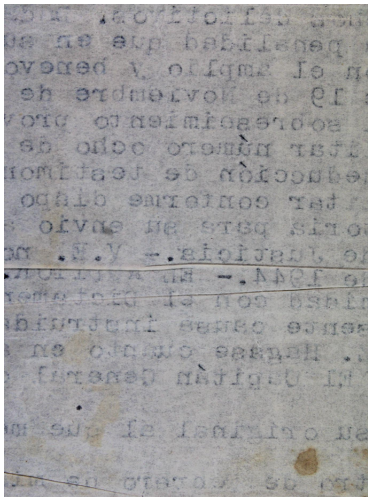 penalidad que en su
el amplio y benevo
19 de Noviembre de
sobreseimiento prov
itar número ocho de
deducción de testimon
itar conforme dispo
oria para su envio a
de Justicia.- V.E. no
de 1944.- EL AUDITOR.
midad con el dictamen
sente causa instruida
. Hágase cuanto en e
El Capitán General
su original al que me
tro de enero de mil